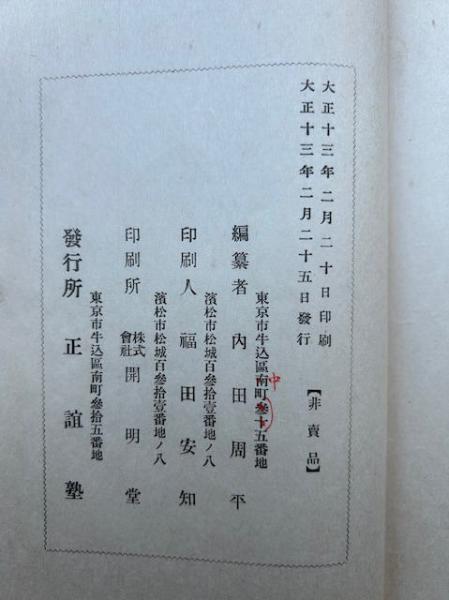 大正十三年二月二十日印刷
大正十三年二月二十五日發行
【非賣品】
東京市牛込區南町參十五番地
中
編纂者 內田周平
濱松市松城百參拾壹番地ノ八
印刷人 福田安知
濱松市松城百參拾壹番地ノ八
印刷所 株式會社 開明堂
東京市牛込區南町參拾五番地
發行所 正誼塾